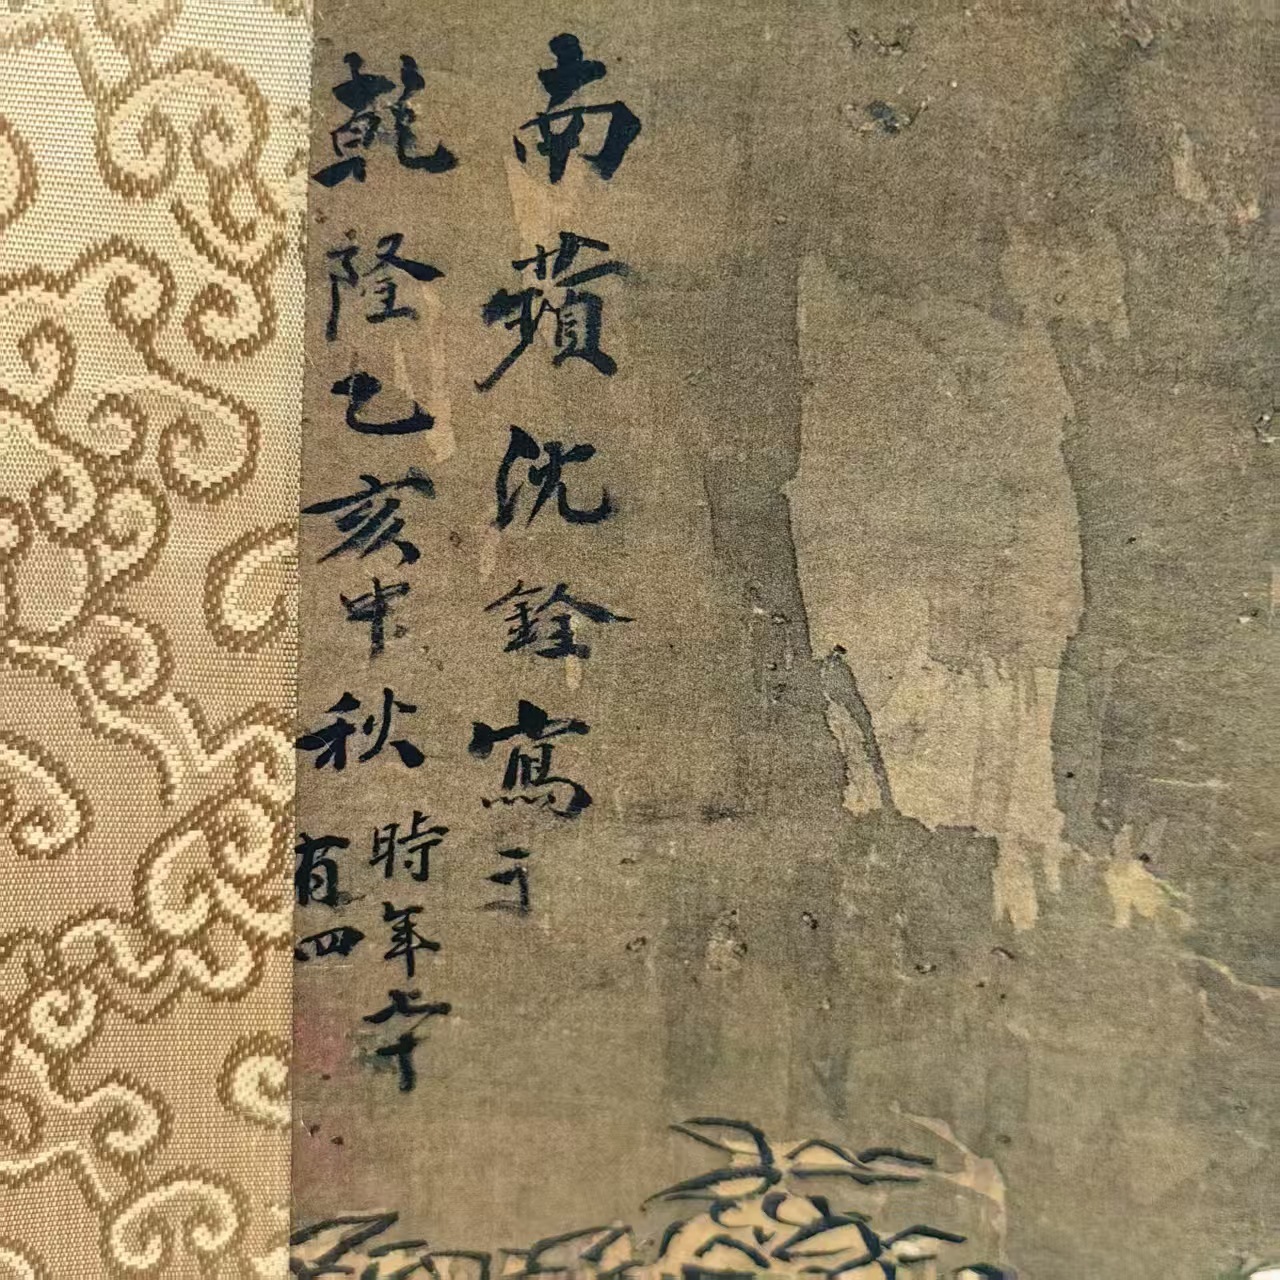 南蘋沈銓寫于
乾隆乙亥中秋
時年七十
有四